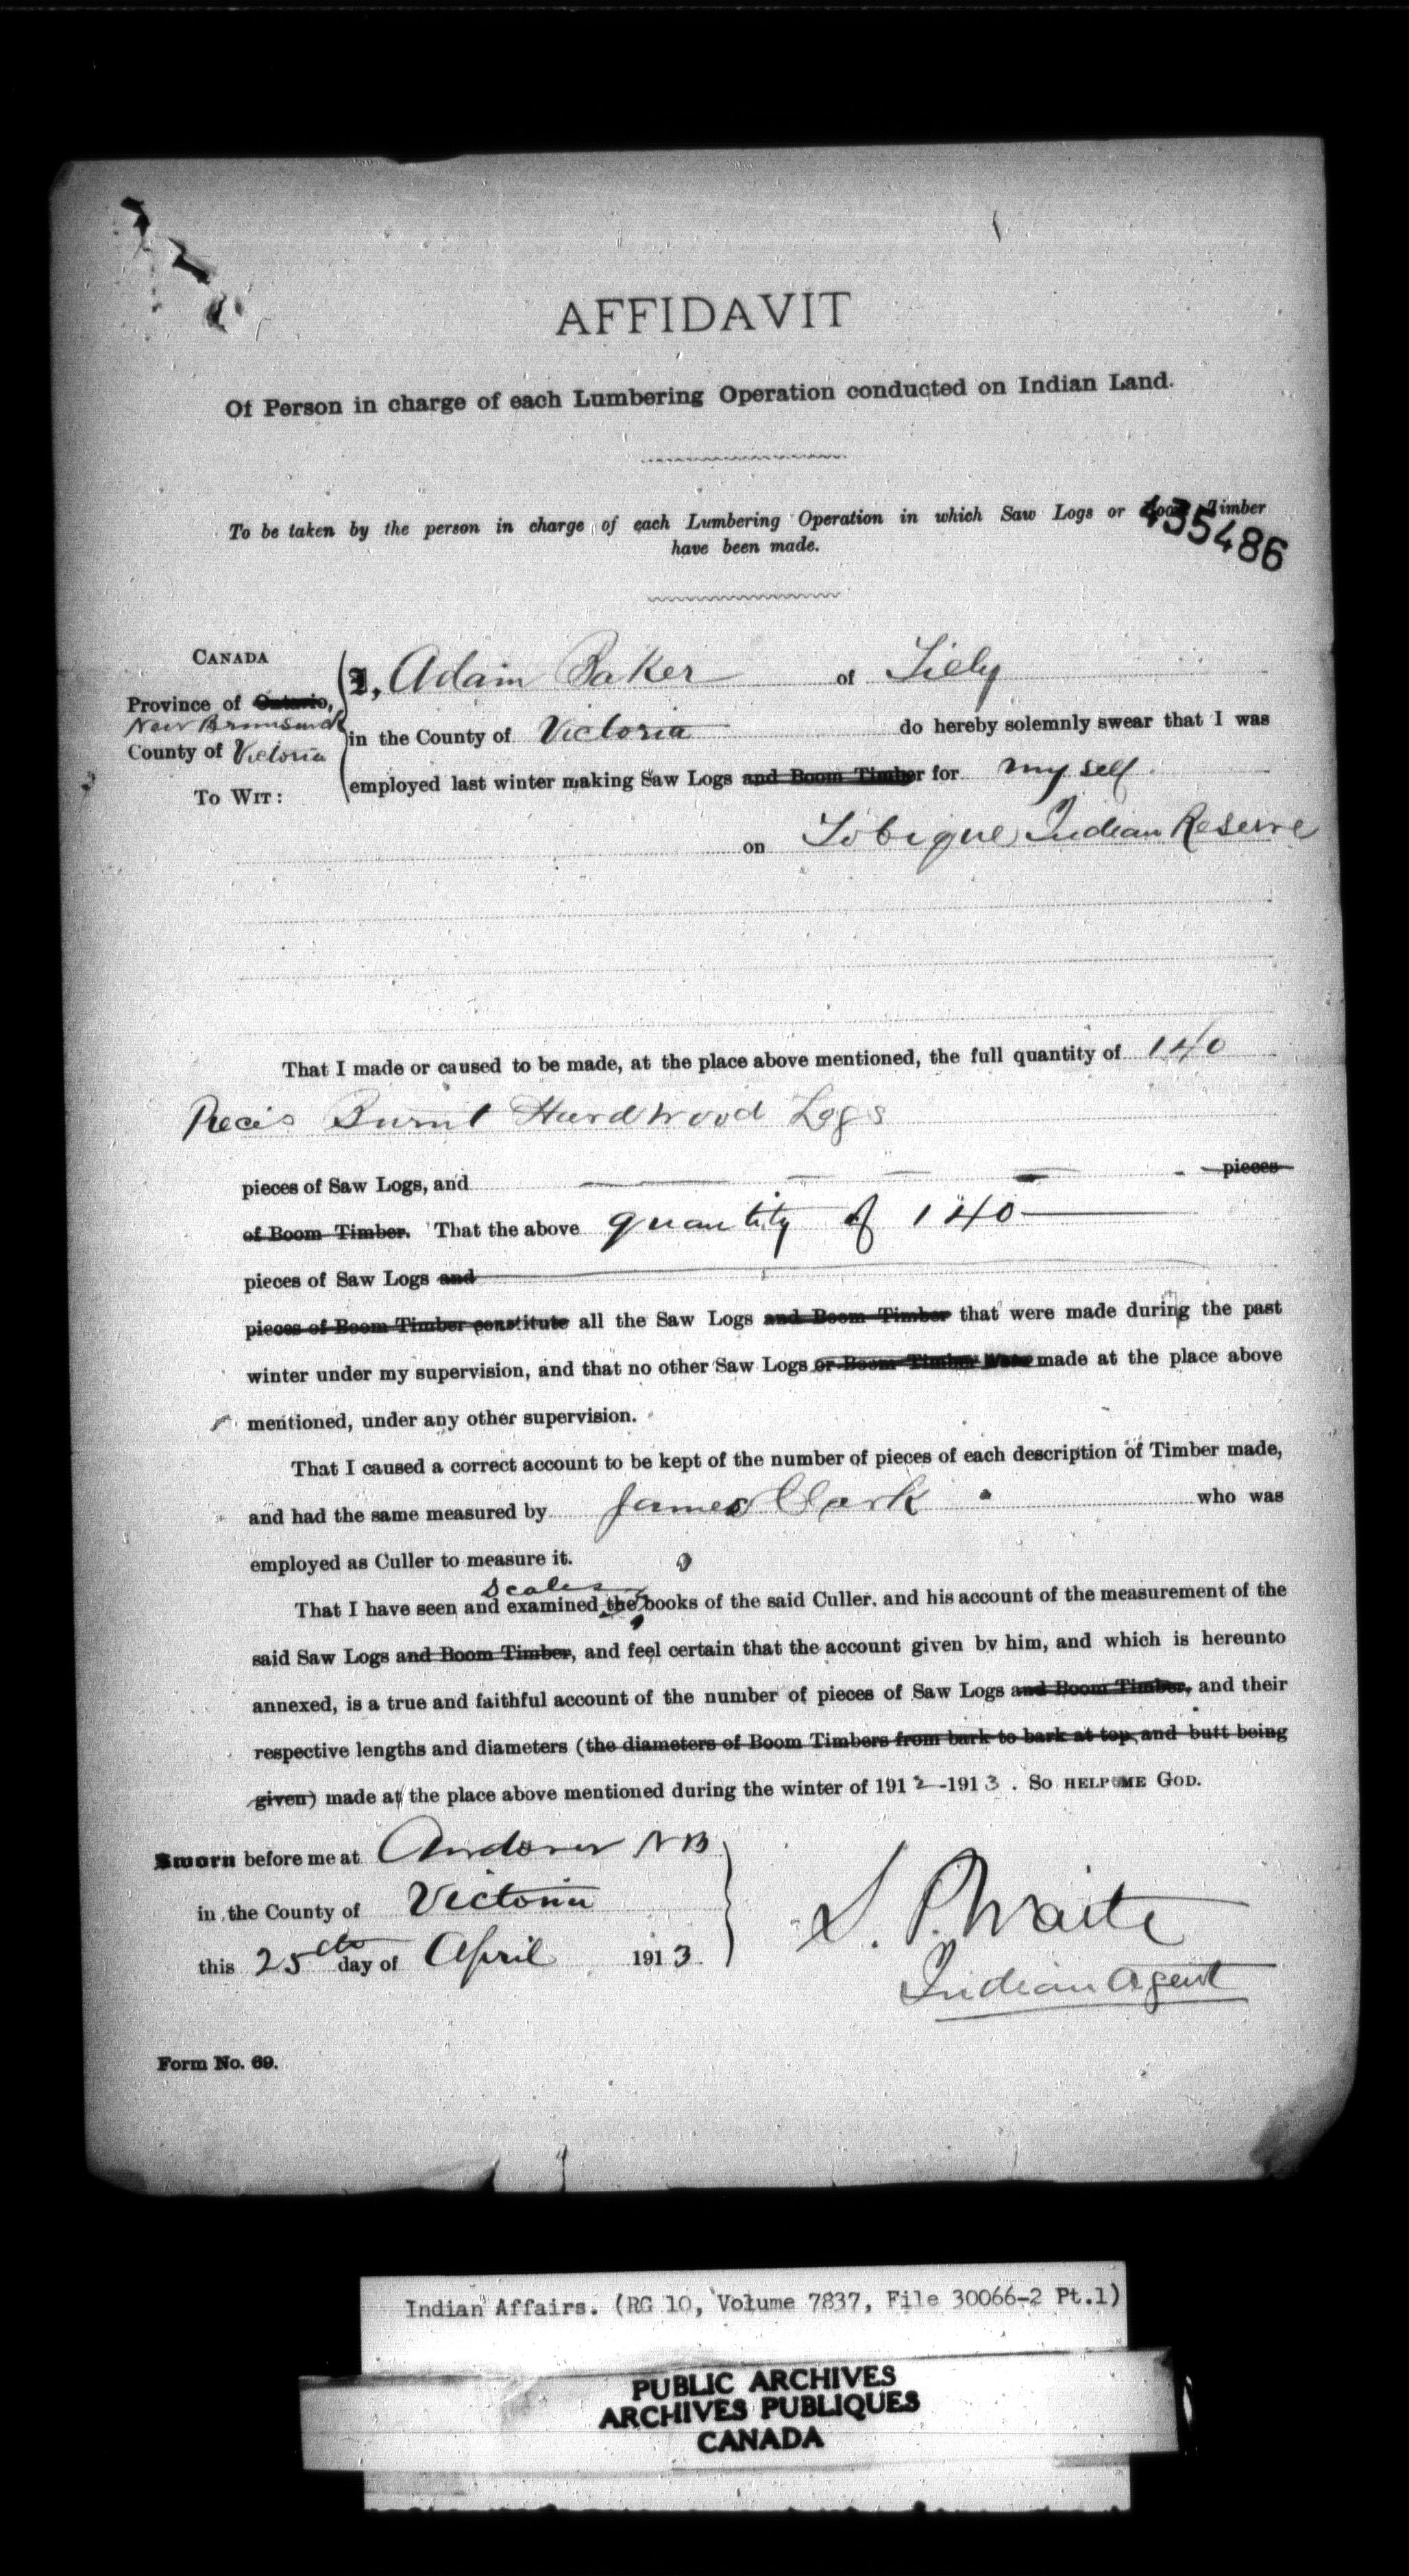 AFFIDAVIT
Of Person in charge of each Lumbering Operation conducted on Indian Land.
To be taken by the person in charge of each Lumbering Operation in which Saw Logs or Boom Timber
have been made.
435486
CANADA
Province of Ontario,
New Brunswick
County of Victoria
TO WIT:
I, Adam Baker of
in the County of Victoria do hereby solemnly swear that I was
employed last winter making Saw Logs and Boom Timber for my self
on Tobique Indian Reserve
That I made or caused to be made, at the place above mentioned, the full quantity of 140
Pieces Burnt Hardwood Logs
pieces of Saw Logs, and pieces
of Boom Timber. That the above quantity of 140
pieces of Saw Logs and
pieces of Boom Timber constitute all the Saw Logs and Boom Timber that were made during the past
winter under my supervision, and that no other Saw Logs or Boom Timber were made at the place above
mentioned, under any other supervision.
That I caused a correct account to be kept of the number of pieces of each description of Timber made,
and had the same measured by James Clark who was
employed as Culler to measure it.
scales
That I have seen and examined the books of the said Culler. and his account of the measurement of the
said Saw Logs and Boom Timber, and feel certain that the account given by him, and which is hereunto
annexed, is a true and faithful account of the number of pieces of Saw Logs and Boom Timber, and their
respective lengths and diameters (the diameters of Boom Timbers from bark to bark at top and butt being
given) made at the place above mentioned during the winter of 1912-1913. SO HELP ME GOD.
Sworn before me at Andover NB
in the County of Victoria
this 25th day of April 1913.
S. P. Waite
Indian Agent
Form No. 69.
Indian Affairs. (RG 10, Volume 7837, File 30066-2 Pt.1)
PUBLIC ARCHIVES
ARCHIVES PUBLIQUES
CANADA